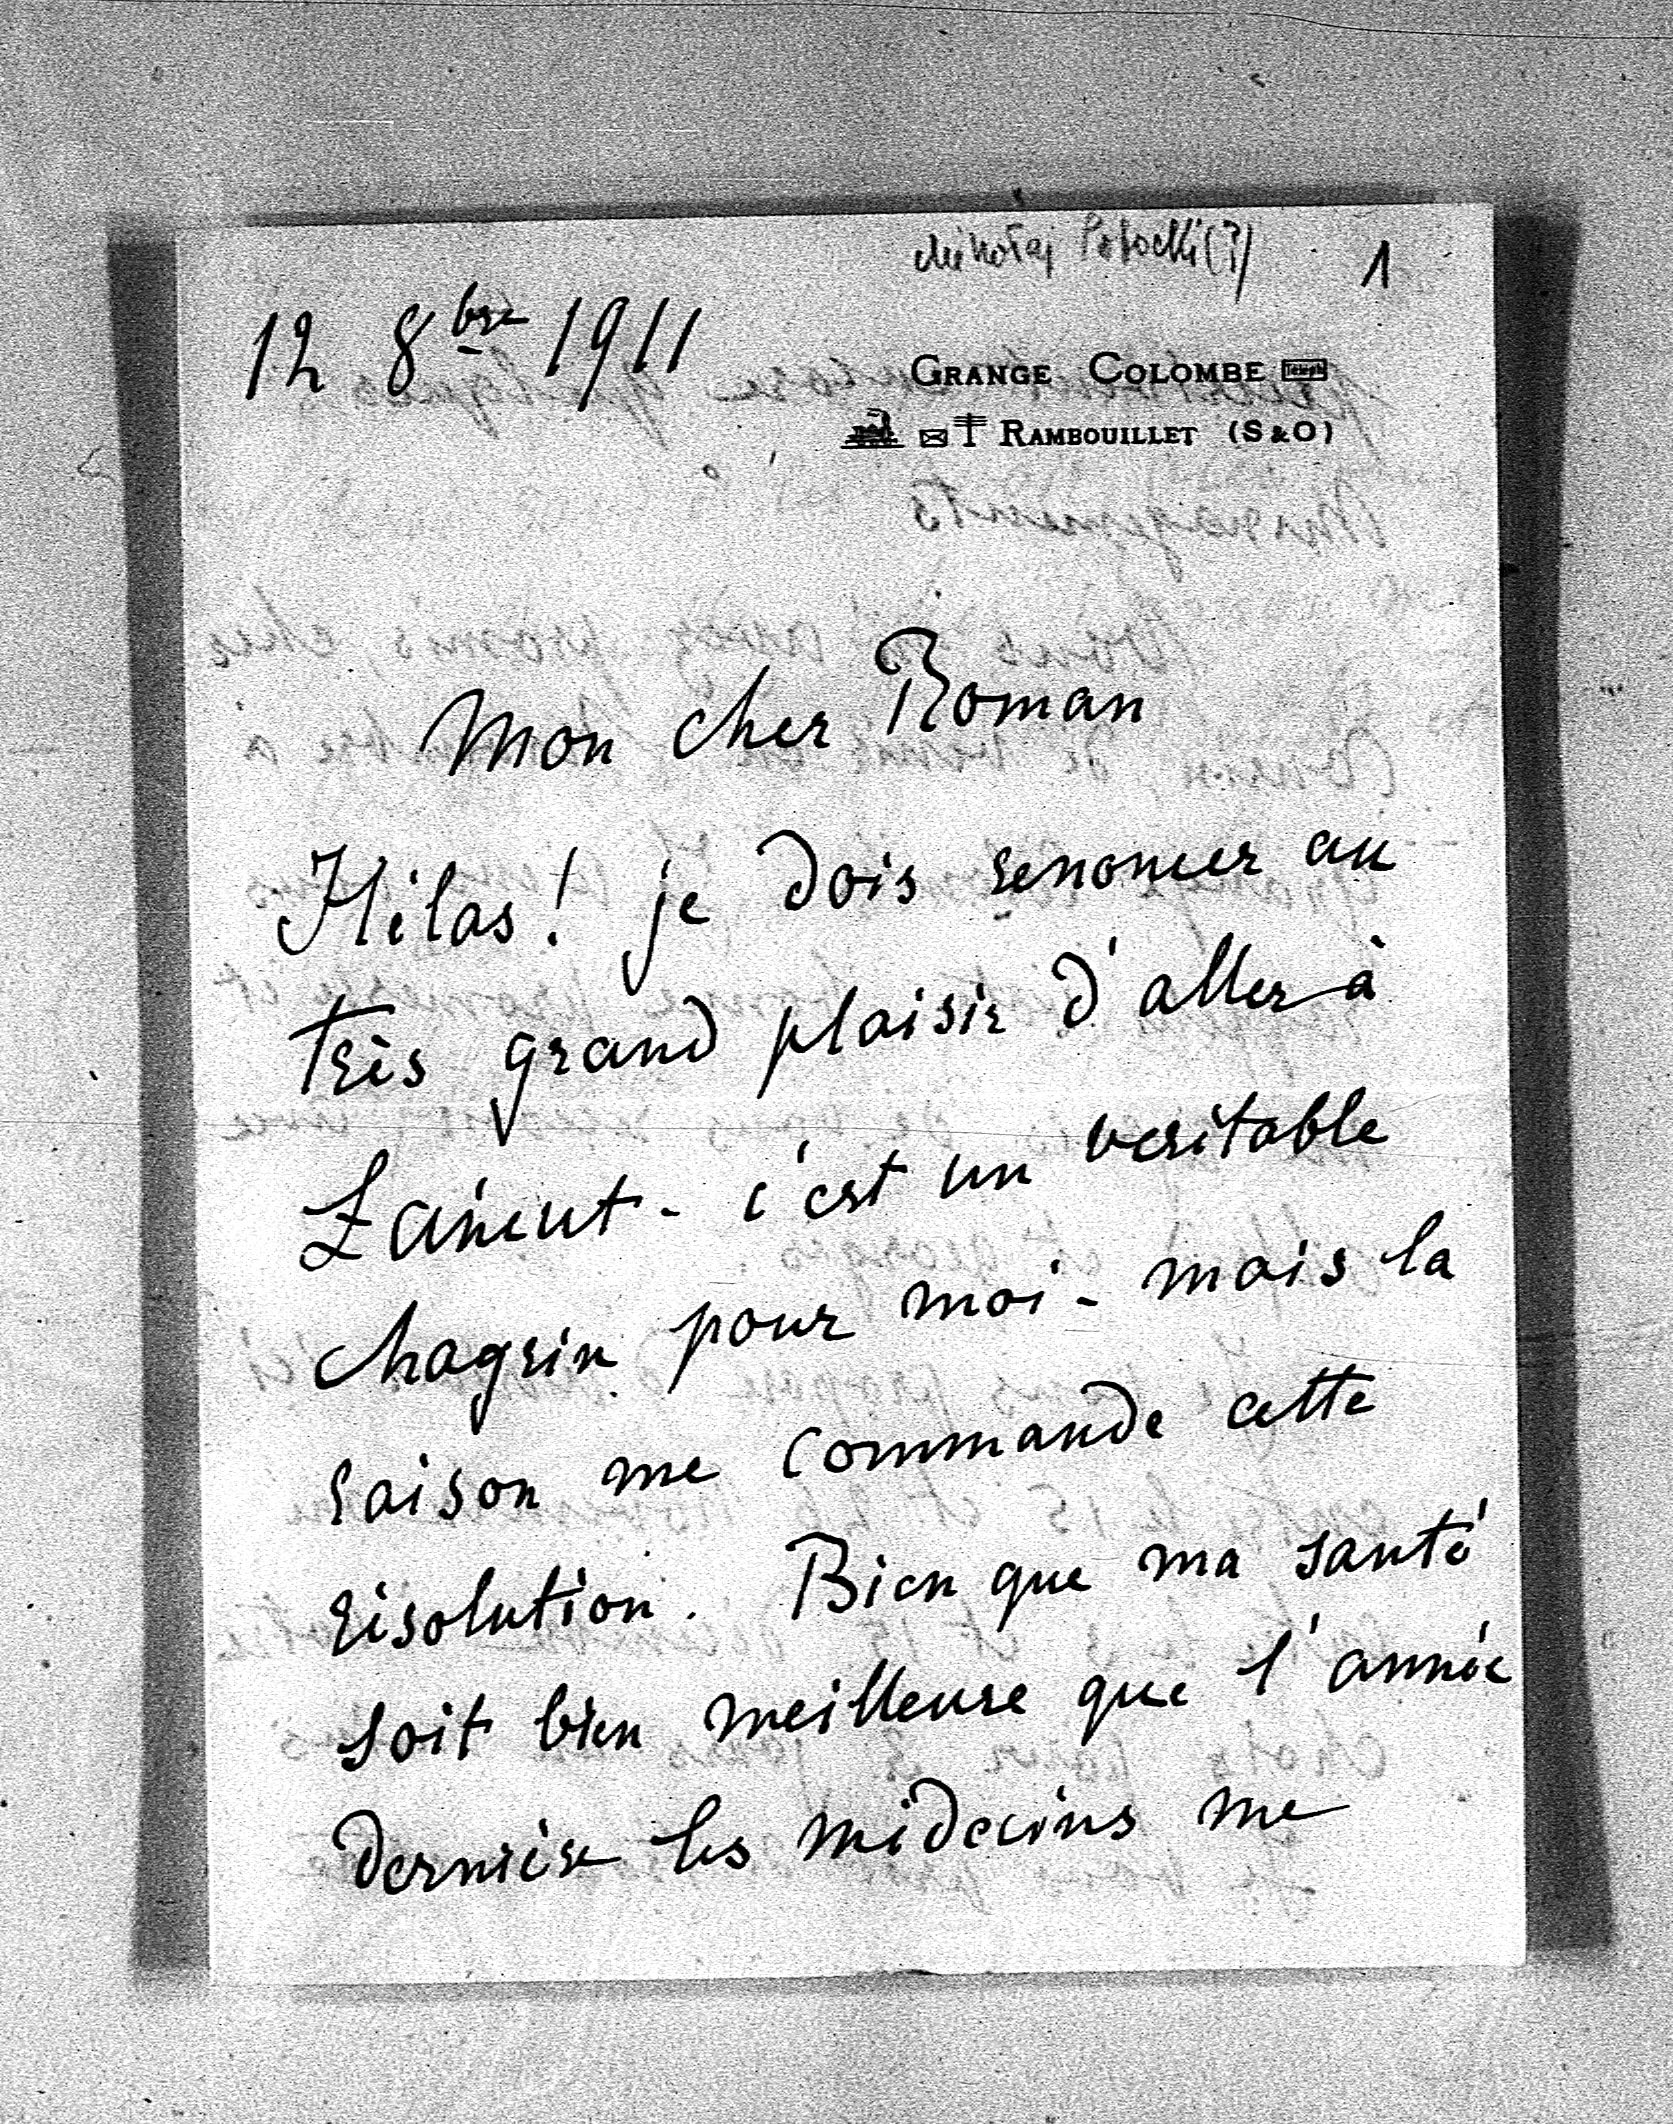 Mikołaj Potocki(?) 1
12 8bre 1911
GRANGE COLOMBE Télégph
RAMBOUILLET (S & O)
Mon cher Roman
Hélas! je dois renoncer au
très grand plaisir d'aller à
Łańcut - c'est un veritable
chagrin pour moi - mais la
raison me commande cette
résolution. Bien que ma santé
soit bien meilleure que l'année
dernière les médecins me